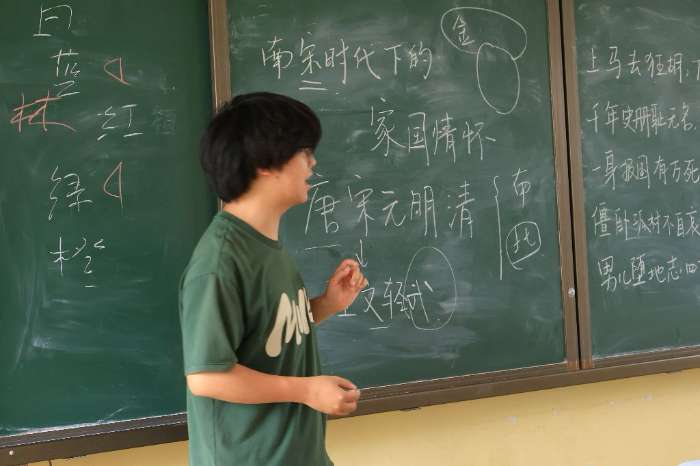 蓝
林
红
绿
橙
金
南宋时代下的
家国情怀
唐宋元明清
布
文轻武
上马击狂胡,
千年史册耻无名
一身报国有万死
僵卧孤村不自哀
男儿堕地志四